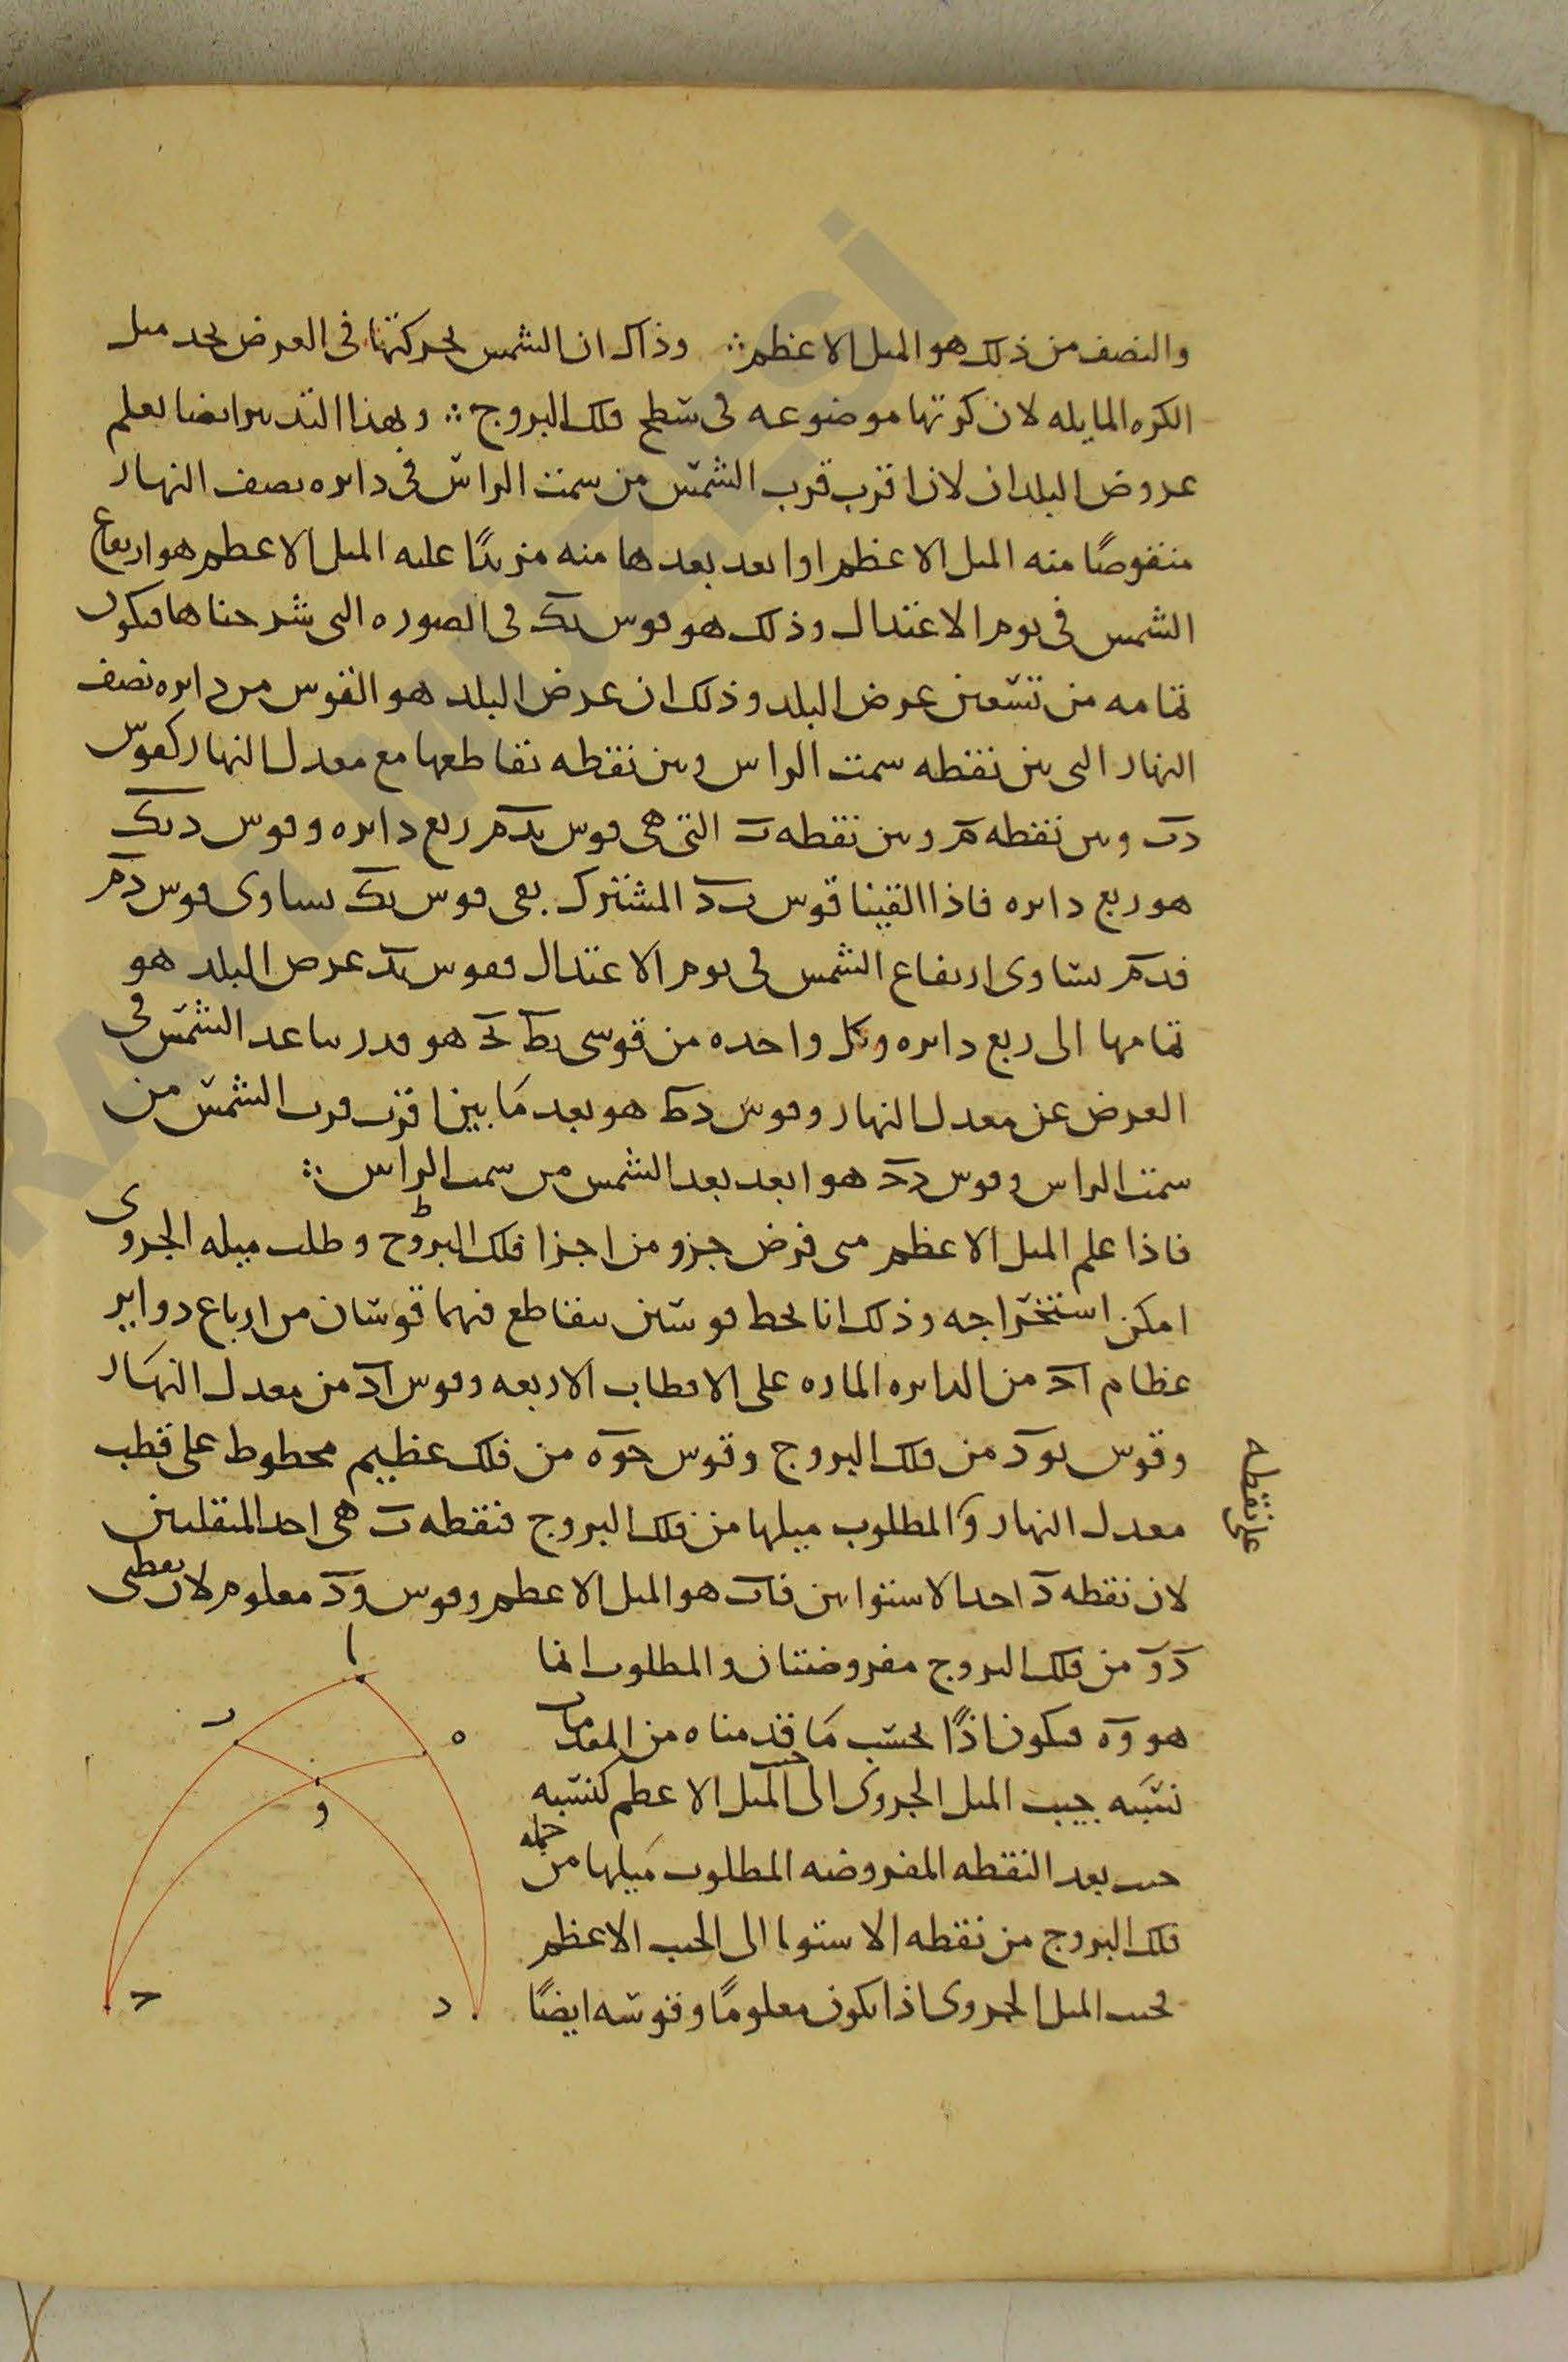 والنصف من ذلك هو الميل الاعظم ∴ وذاك ان الشمس بحركتها فى العرض بحد ميل
الكره المايله لان كرتها موضوعه فى سطح فلك البروج ∴ وبهذا التدبير ايضا يعلم
عروض البلدان لان اقرب قرب الشمس من سمت الراس فى دايره نصف النهار
منقوصًا منه الميل الاعظم او ابعد بعدها منه مزيدًا عليه الميل الاعظم هو ارتفاع
الشمس فى يوم الاعتدال وذلك هو قوس بك فى الصوره التى شرحناها فيكون
تمامه من تسعين عرض البلد وذلك ان عرض البلد هو القوس من دايره نصف
النهار التى بين نقطه سمت الراس وبين نقطه تقاطعها مع معدل النهار كقوس
دب وبين نقطه م وبين نقطه ب التى هى قوس بدم ربع دايره وقوس دبك
هو ربع دايره فاذا القينا قوس بد المشترك بقى قوس بك يساوى قوس دم
فدم يساوى ارتفاع الشمس فى يوم الاعتدال فقوس بد عرض البلد هو
تمامها الى ربع دايره وكل واحده من قوسى بط بح هو قدر تباعد الشمس فى
العرض عن معدل النهار وقوس دط هو بعد ما بين اقرب قرب الشمس من
سمت الراس وقوس دح هو ابعد بعد الشمس من سمت الراس ∴
فاذا علم الميل الاعظم متى فرض جزو من اجزا فلك البروج وطلب ميله الجزوى
امكن استخراجه وذلك انا نخط قوسين يتقاطع فيهما قوسان من ارباع دواير
عظام اح من الدايره الماره على الاقطاب الاربعه وقوس اد من معدل النهار
وقوس بود من فلك البروج وقوس حوه من فلك عظيم مخطوط على قطب
معدل النهار والمطلوب ميلها من فلك البروج فنقطه ب هى احد المنقلبين
على نقطه ح
لان نقطه د احد الاستوايين فاب هو الميل الاعظم وقوس ود معلوم لان نقطتى
د و من فلك البروج مفروضتان والمطلوب انما
هو وه فيكون اذًا بحسب ما قدمناه من المقدمات
نسبه جيب الميل الجزوى الى جيب الميل الاعظم كنسبه
جيب بعد النقطه المفروضه المطلوب ميلها من جمله
فلك البروج من نقطه الاستوا الى الجيب الاعظم
فجيب الميل الجزوى اذا يكون معلومًا وقوسه ايضًا
ا
ب
ه
و
ح
د